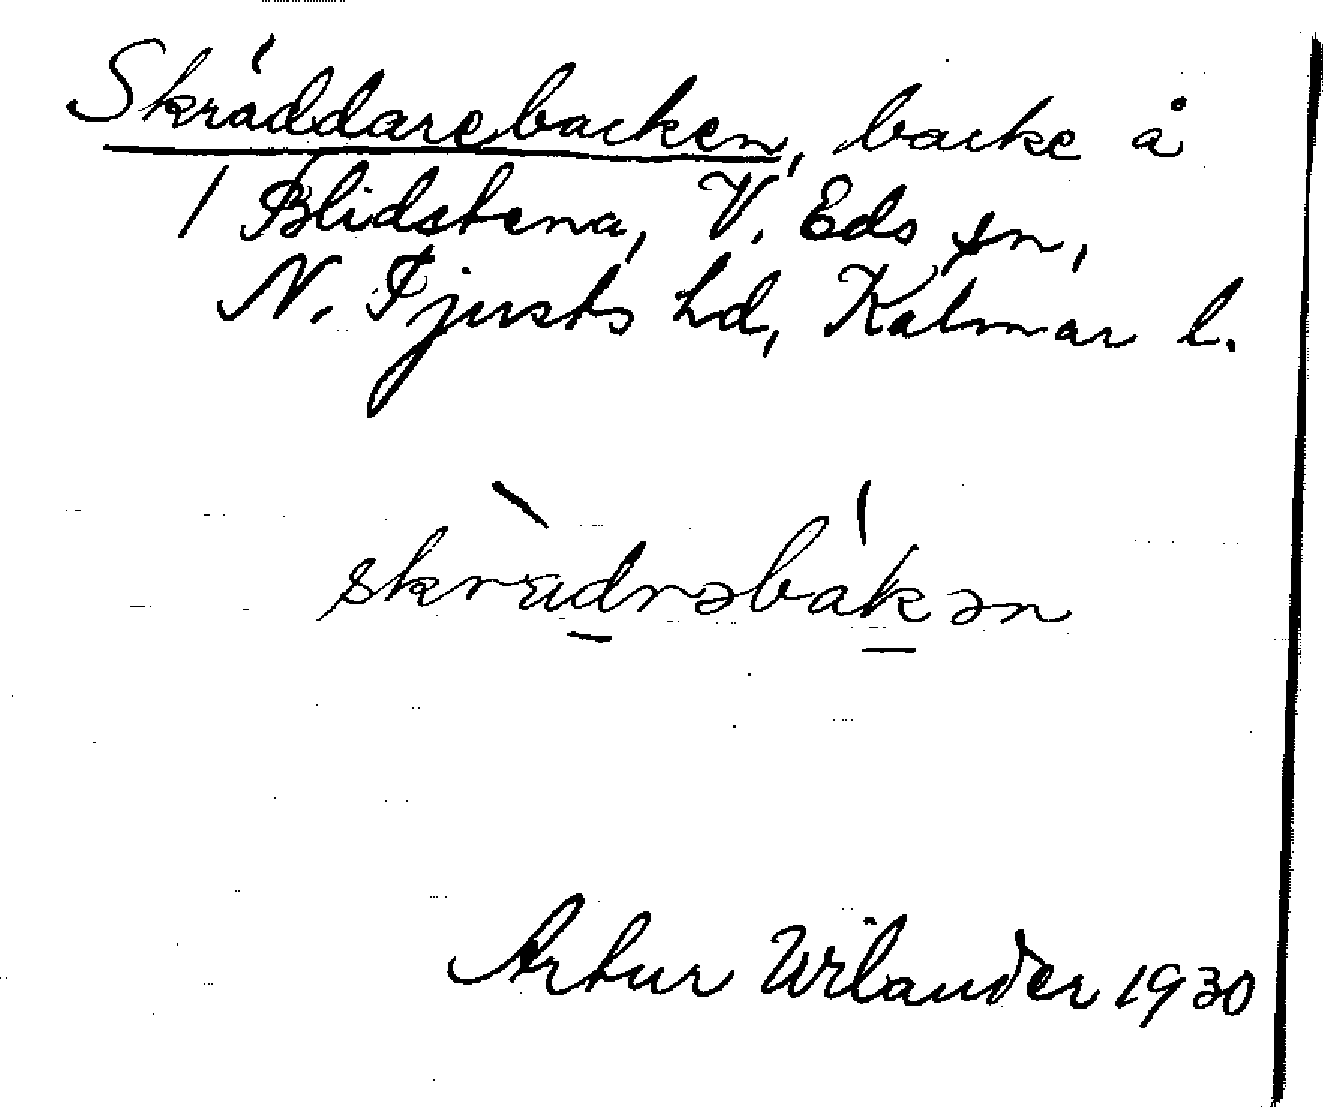 Skräddarebacken, backe å
/ Blidstena, V. Eds sn,
N. Tjusts hd, Kalmar l.
skrädrəbakən
Artur Wilander 1930